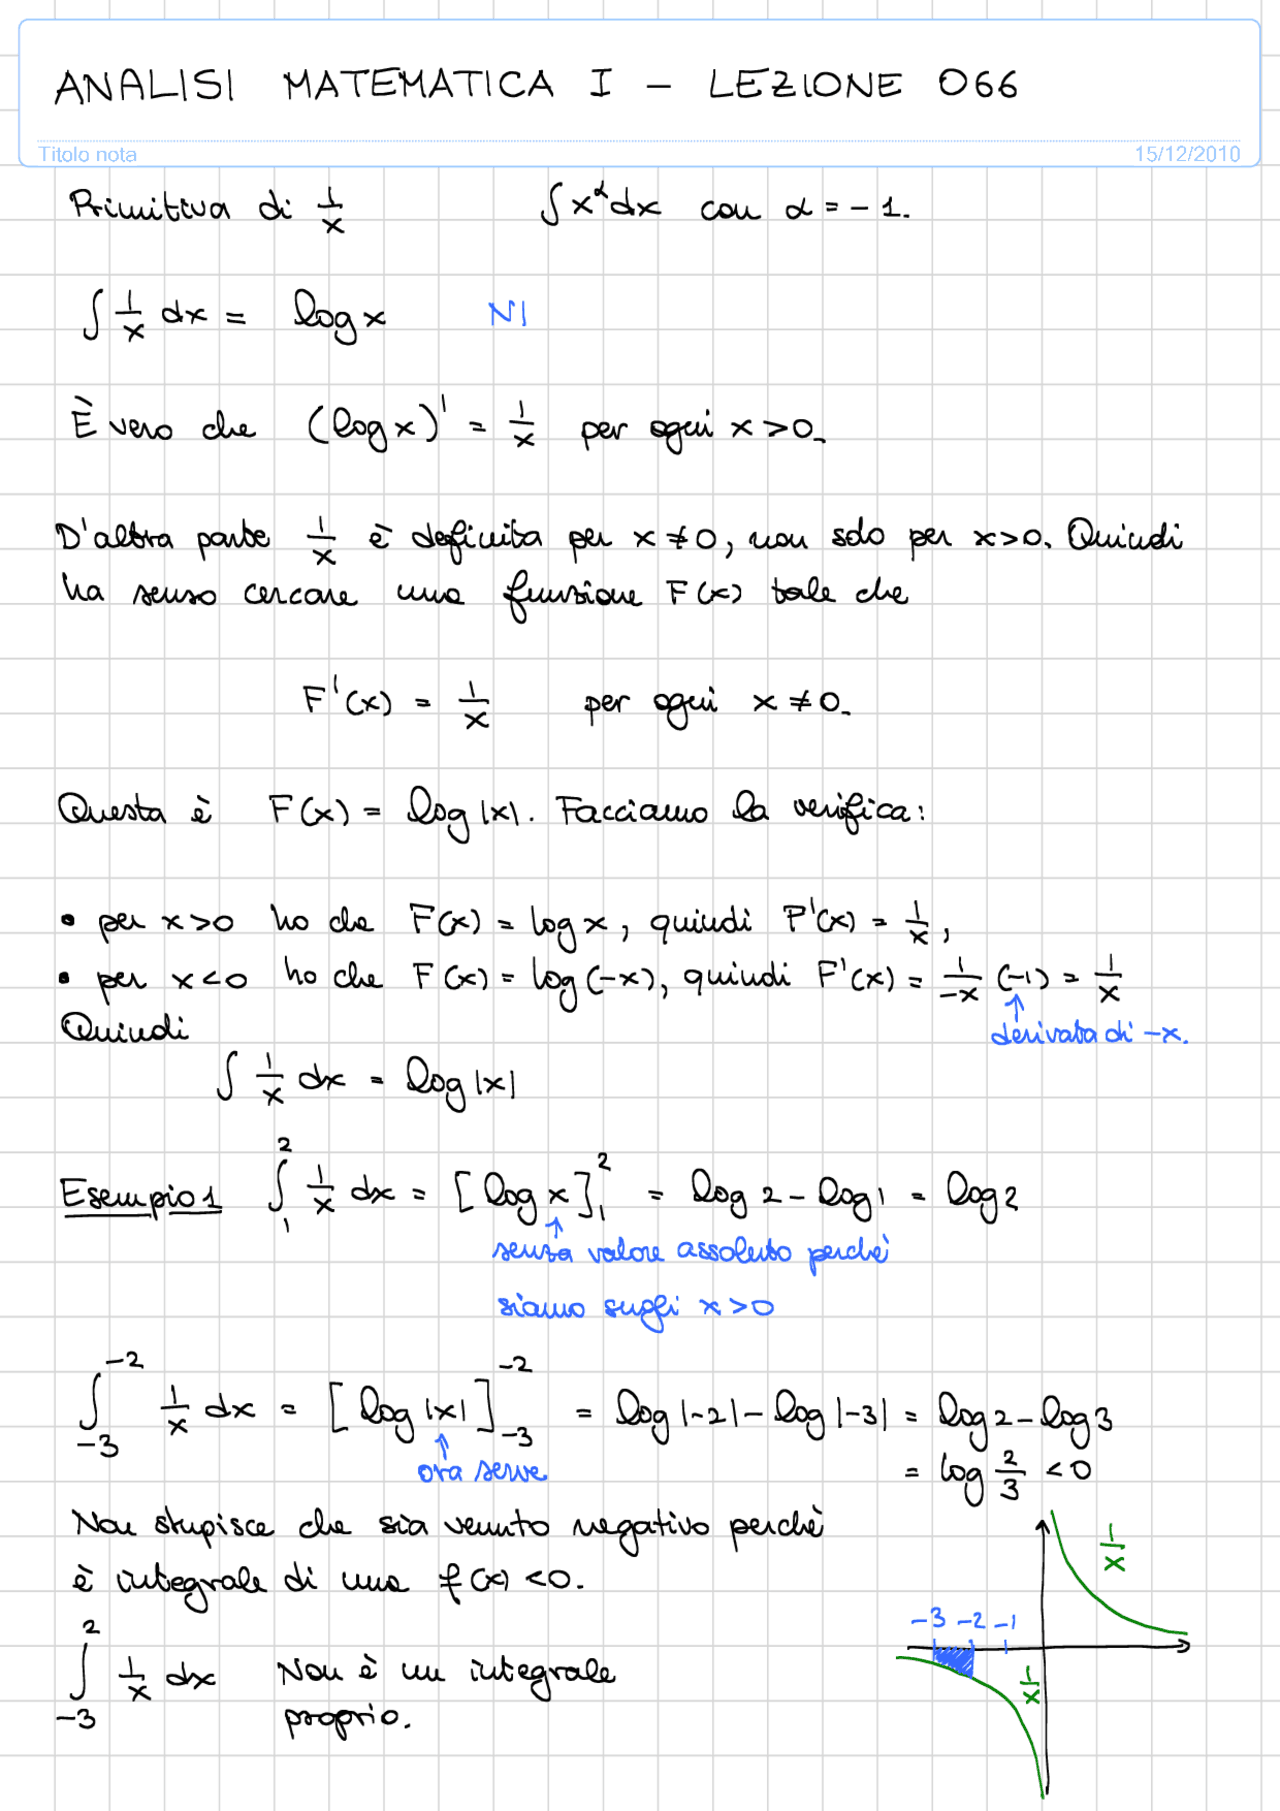 ANALISI MATEMATICA I - LEZIONE 066
Titolo nota 15/12/2010
Primitiva di 1/x ∫ x^α dx con α = -1.
∫ 1/x dx = log x NI
È vero che (log x)' = 1/x per ogni x > 0.
D'altra parte 1/x è definita per x ≠ 0, non solo per x > 0. Quindi
ha senso cercare una funzione F(x) tale che
F'(x) = 1/x per ogni x ≠ 0.
Questa è F(x) = log |x|. Facciamo la verifica:
• per x > 0 ho che F(x) = log x, quindi F'(x) = 1/x,
• per x < 0 ho che F(x) = log(-x), quindi F'(x) = 1/-x (-1) = 1/x
Quindi ↑ derivata di -x.
∫ 1/x dx = log |x|
Esempio 1 ∫_1^2 1/x dx = [log x]_1^2 = log 2 - log 1 = log 2
↑ senza valore assoluto perchè
siamo sugli x > 0
∫_-3^-2 1/x dx = [log |x|]_-3^-2 = log |-2| - log |-3| = log 2 - log 3
↑ ora serve = log 2/3 < 0
Non stupisce che sia venuto negativo perchè
è integrale di una f(x) < 0.
∫_-3^2 1/x dx Non è un integrale
proprio.
1/x
-3 -2 -1
1/x